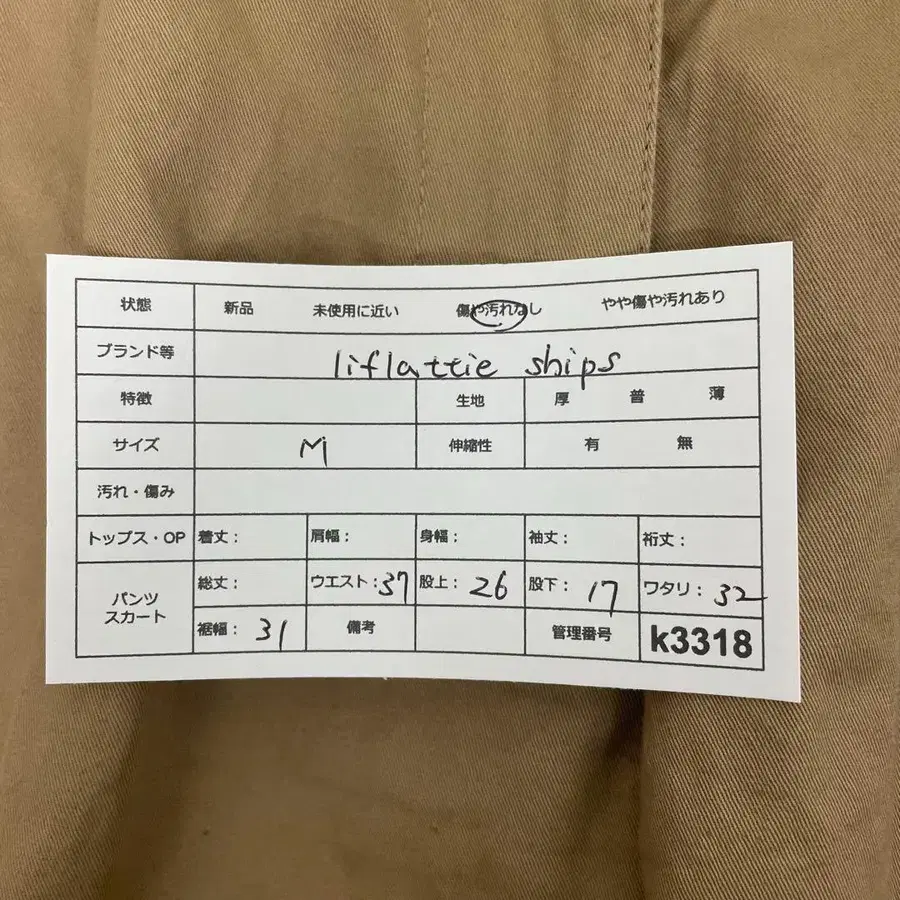 状態 新品 未使用に近い 傷や汚れなし やや傷や汚れあり
ブランド等 liflattie ships
特徴 生地 厚 普 薄
サイズ M 伸縮性 有 無
汚れ・傷み
トップス・OP 着丈： 肩幅： 身幅： 袖丈： 裄丈：
パンツ スカート 総丈： ウエスト：37 股上：26 股下：17 ワタリ：32
裾幅：31 備考 管理番号 k3318